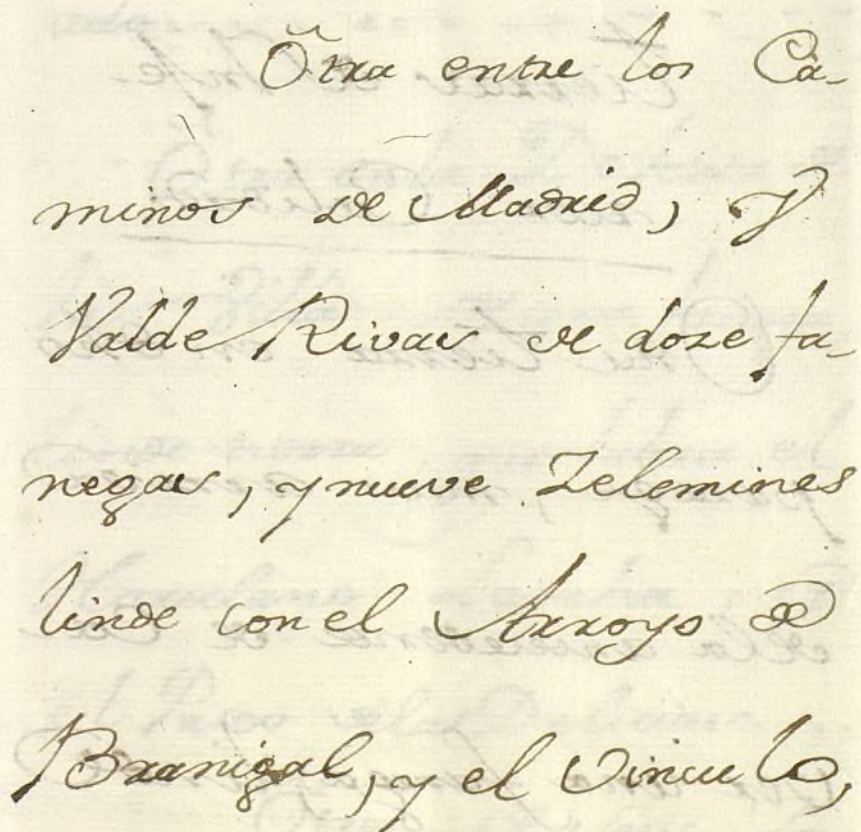 Otra entre los Ca-
minos de Madrid, y
Valde Rivas de doze fa-
negas, y nueve Zelemines
linde con el Arroyo de
Branigal, y el Vinculo,